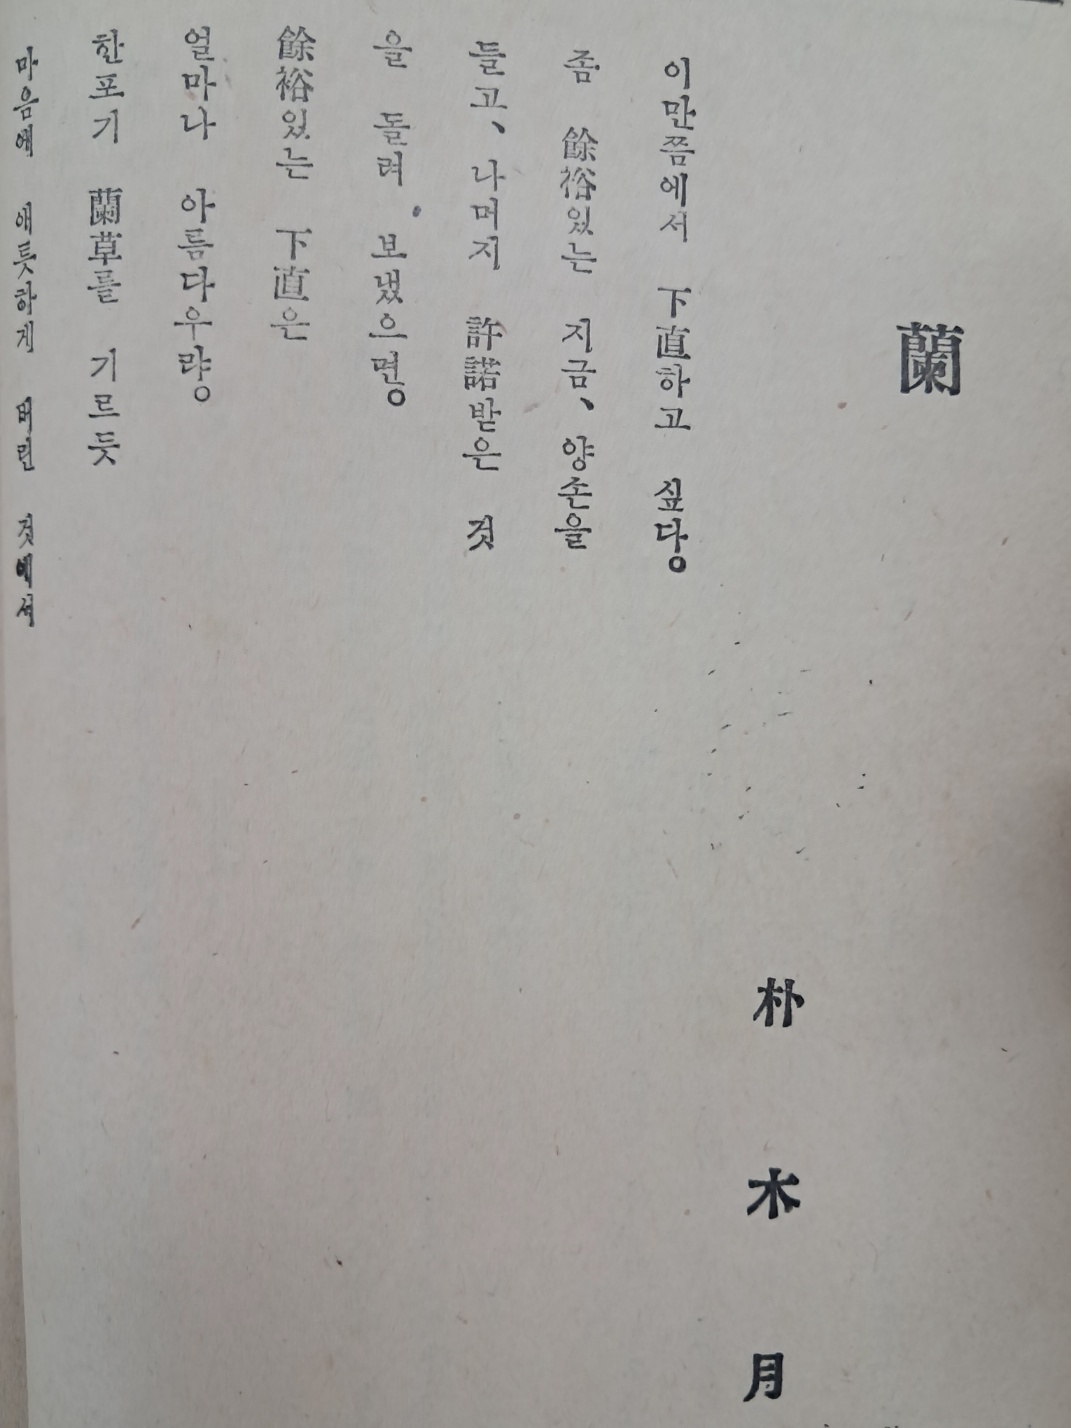 蘭
朴木月
이만쯤에서 下直하고 싶다。
좀 餘裕있는 지금、양손을
들고、나머지 許諾받은 것
을 돌려 보냈으면。
餘裕있는 下直은
얼마나 아름다우랴。
한포기 蘭草를 기르듯
마음에 애틋하게 버린 것에서